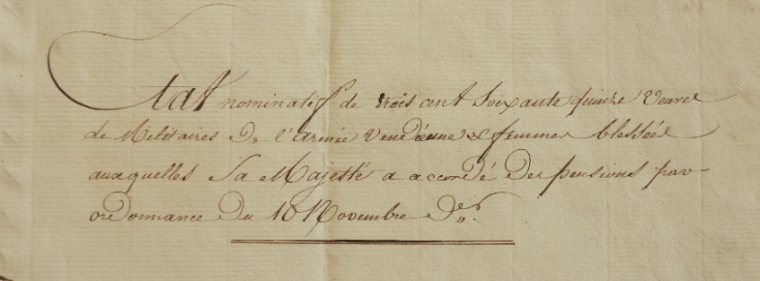 Etat nominatif de trois cent soixante quinze veuves
de Militaires de l'armée vendéenne & femmes blessées
auxquelles Sa Majesté a accordé des pensions par
ordonnance du 10 Novembre d.er